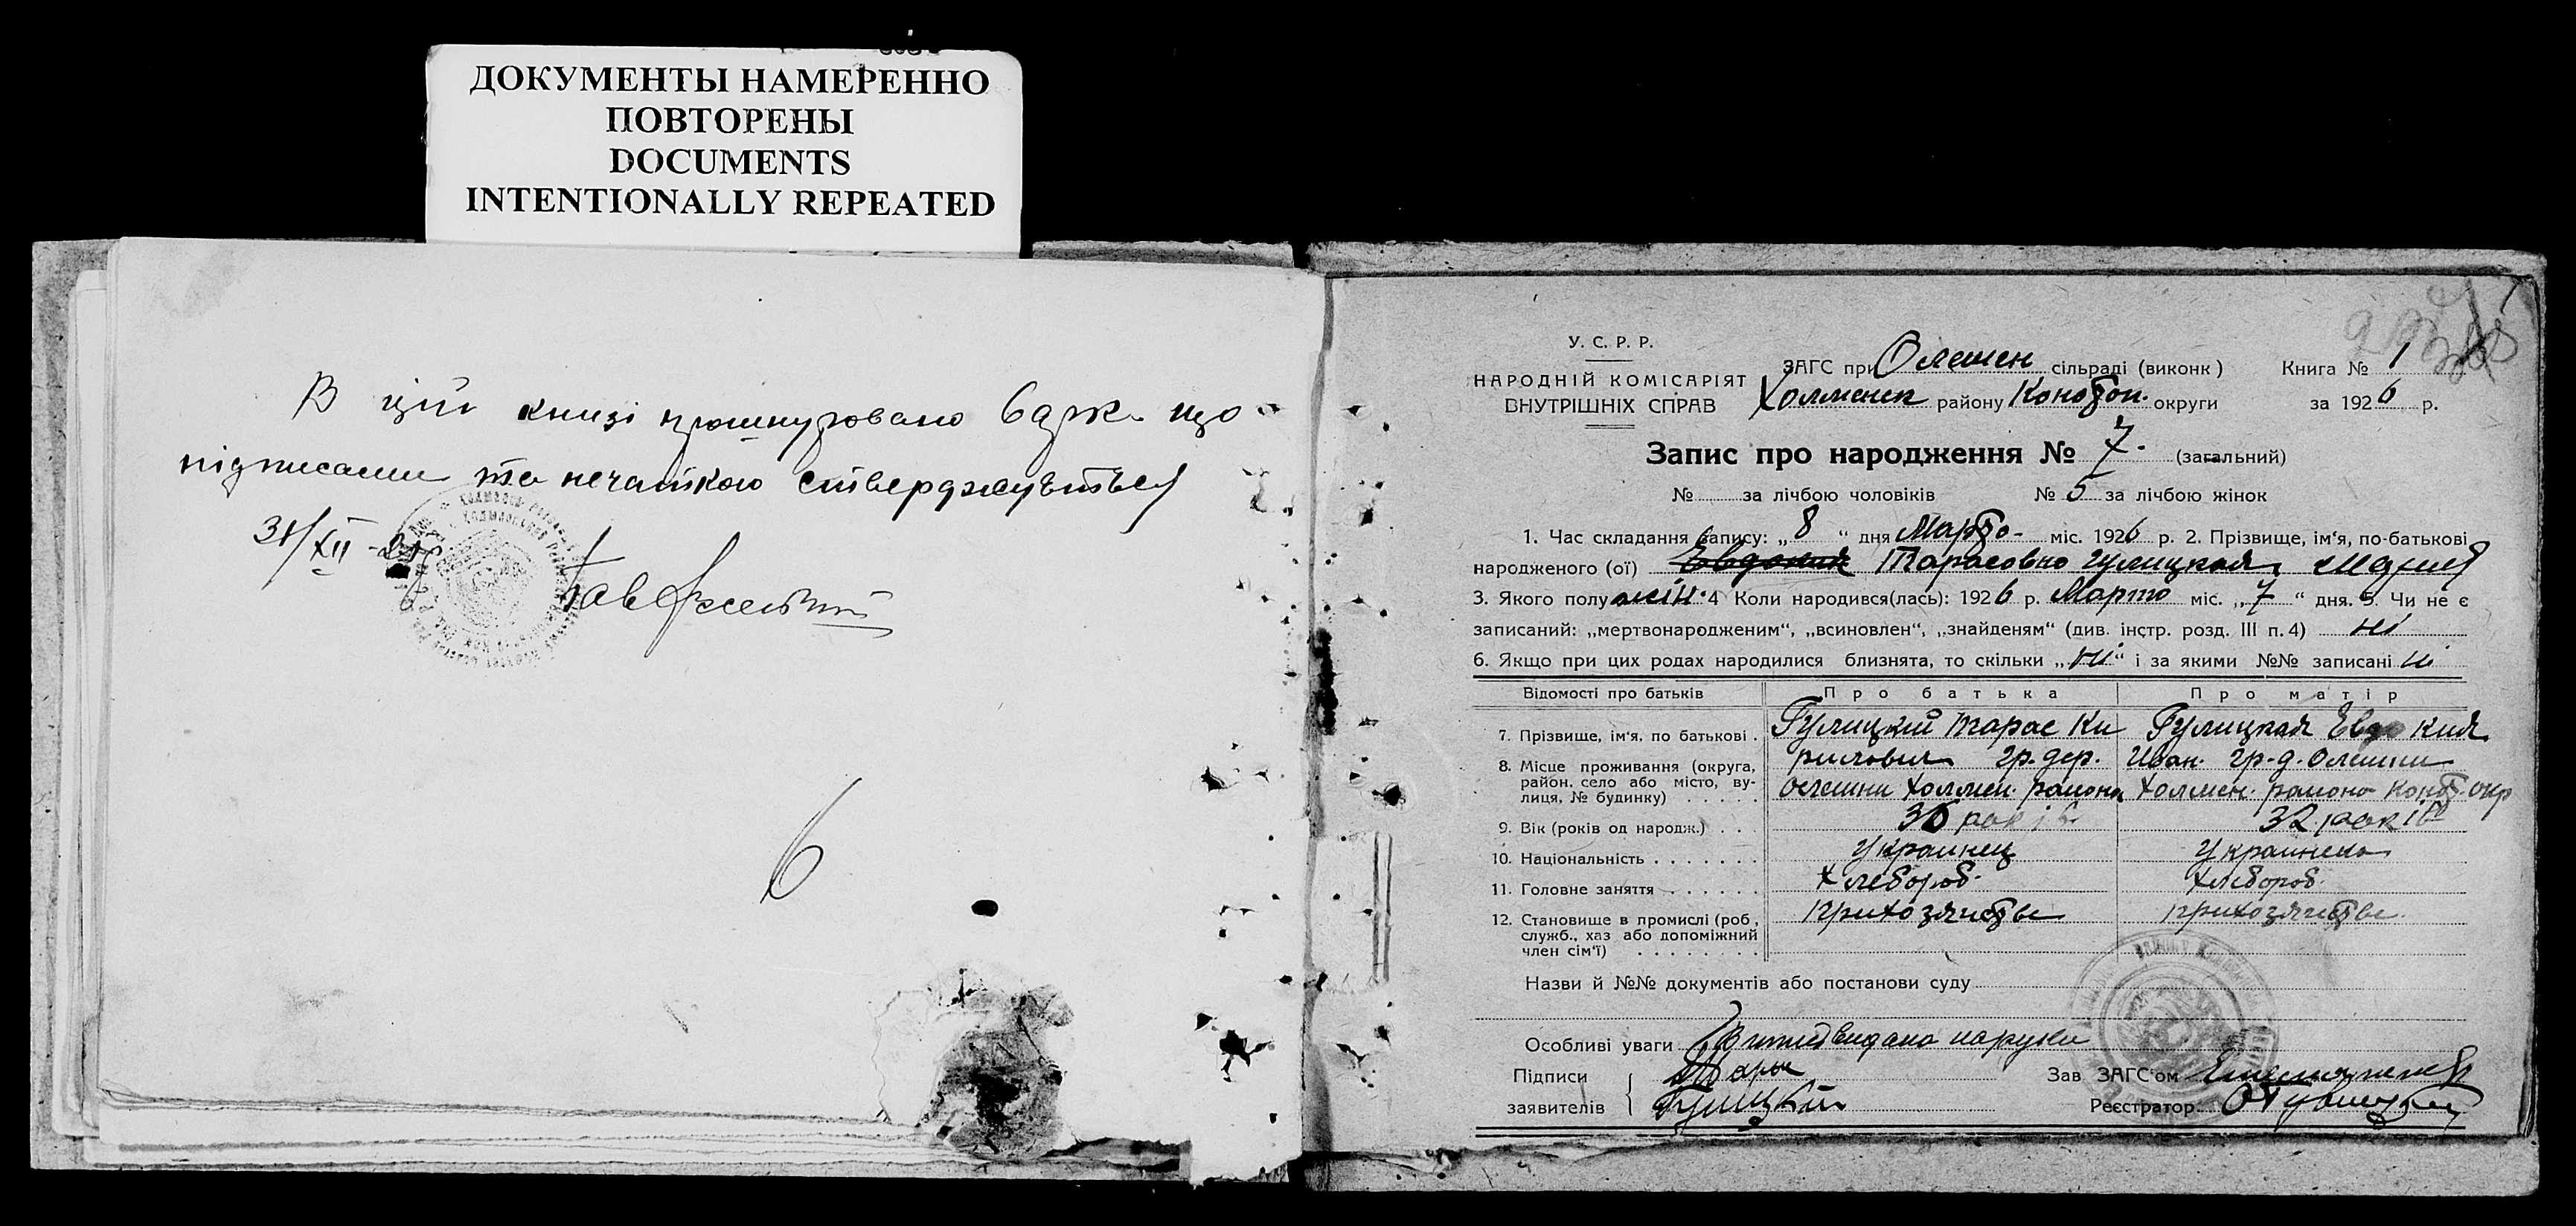 ДОКУМЕНТЫ НАМЕРЕННО
ПОВТОРЕНЫ
DOCUMENTS
INTENTIONALLY REPEATED
В цій книзі прошнуровано 6 арк. що
підписами та печаткою стверджується
31/XII
6
У. С. Р. Р.
НАРОДНІЙ КОМІСАРІЯТ
ВНУТРІШНІХ СПРАВ
ЗАГС при Олешен сільраді (виконк)
Холменск району Конотоп. округи
Книга № 1
за 1926 р.
Запис про народження № 7. (загальний)
№ за лічбою чоловіків № 5 за лічбою жінок
1. Час складання запису: „8“ дня Марта міс. 1926 р. 2. Прізвище, ім'я, по-батькові
народженого (ої) Евдокия Тарасовна Гулицкая Мария
3. Якого полу жін. 4 Коли народився(лась): 1926 р. Марта міс. „7“ дня. 5. Чи не є
записаний: „мертвонародженим“, „всиновлен“, „знайденям“ (див. інстр. розд. III п. 4) ні
6. Якщо при цих родах народилися близнята, то скільки „ні“ і за якими №№ записані ні
Відомості про батьків Про батька Про матір
7. Прізвище, ім'я, по батькові . Гулицкий Тарас Ки Гулицкая Евдокия
8. Місце проживання (округа, рилович гр. дер. Иван. гр. д. Олешни
район, село або місто, ву- Олешни Холмен. района Холмен. района Конот. окр
лиця, № будинку) . . . . .
9. Вік (років од народж.) . . . 36 років 32 років
10. Національність . . . . . . . Украинец Украинска
11. Головне заняття . . . . . . Хлебороб. Хлебороб.
12. Становище в промислі (роб., при хозяистве при хозяистве
служб., хаз або допоміжний
член сім'ї) . . . . . . . .
Назви й №№ документів або постанови суду
Особливі уваги Витяг видано на руки
Підписи Тарас Зав ЗАГС'ом
заявителів Гулицкий Реєстратор: